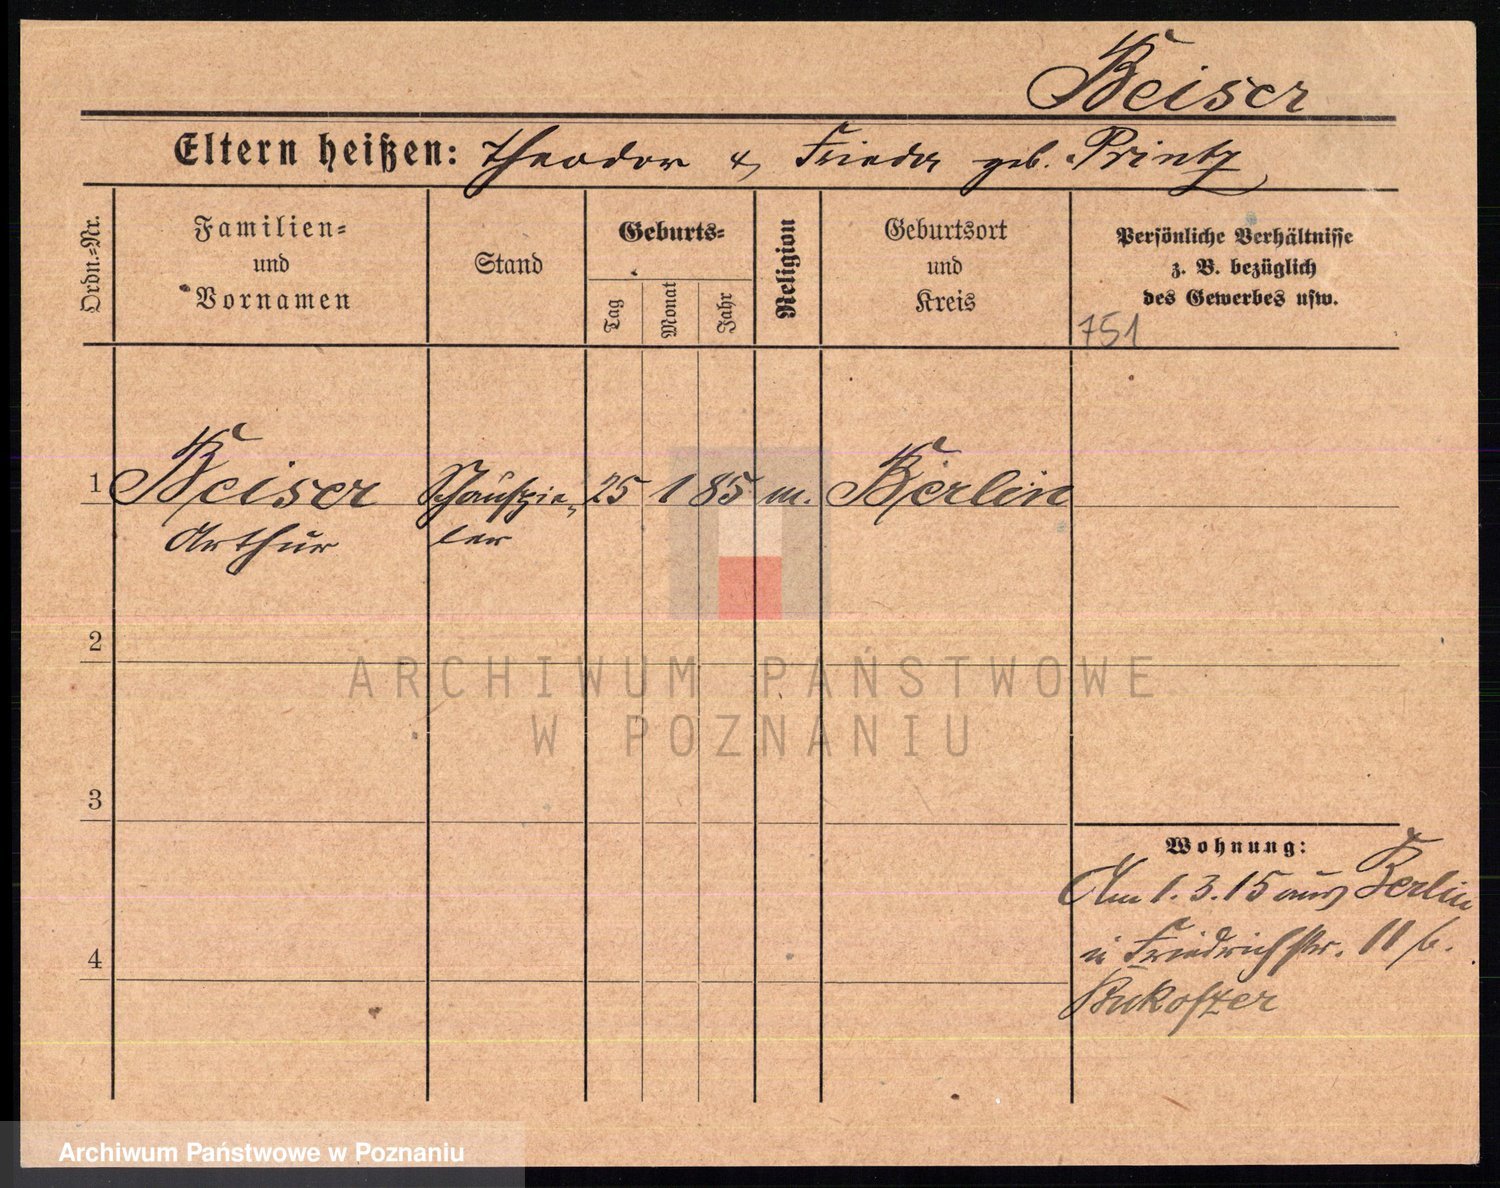 Beiser
Eltern heißen: Theodor & Frieda geb. Printz
Ordn.-Nr.
Familien-
und
Vornamen
Stand
Geburts-
Tag
Monat
Jahr
Religion
Geburtsort
und
Kreis
Persönliche Verhältnisse
z. B. bezüglich
des Gewerbes usw.
751
1 Beiser Schauspie- 25 1 85 m. Berlin
Arthur ler
2
3
4
Wohnung:
Am 1. 3. 15 aus Berlin
n Friedrichstr. 11 b.
Bukofzer
ARCHIWUM PAŃSTWOWE
W POZNANIU
Archiwum Państwowe w Poznaniu